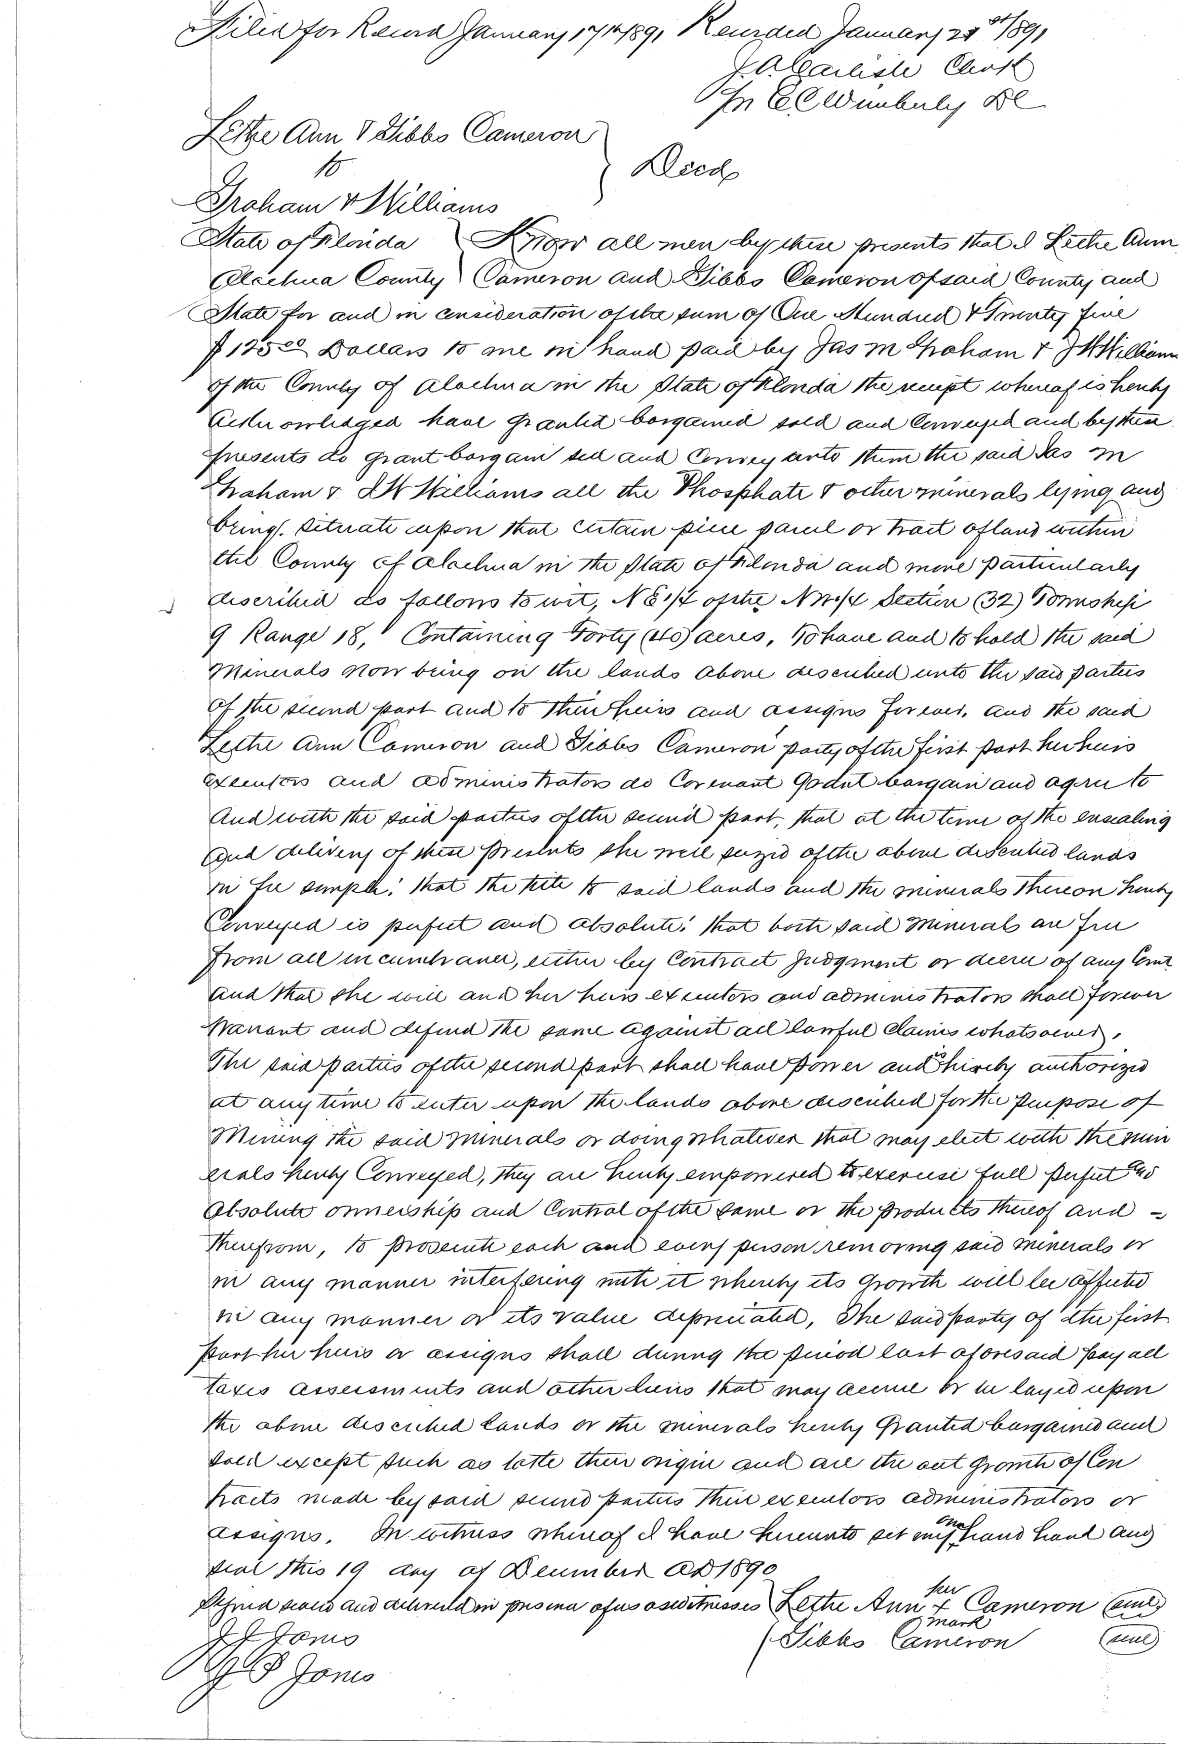 Filed for Record January 17th 1891 Recorded January 21st 1891
J A Carlisle Clerk
Pr E C Wimberly DC
Lethe Ann & Gibbs Cameron
to
Deed
Graham & Williams
State of Florida Know all men by these presents that I Lethe Ann
Alachua County Cameron and Gibbs Cameron of said County and
State for and in consideration of the sum of One Hundred & Twenty five
$125.00 Dollars to me in hand paid by Jas M Graham & J W Williams
of the County of Alachua in the State of Florida the receipt whereof is hereby
Acknowledged have granted bargained sold and Conveyed and by these
presents do grant bargain sell and Convey unto them the said Jas M
Graham & J W Williams all the Phosphate & other minerals lying and
being situate upon that certain piece parcel or tract of land within
the County of Alachua in the State of Florida and more particularly
described as follows to wit, NE 1/4 of the NW 1/4 Section (32) Township
9 Range 18, Containing Forty (40) acres, To have and to hold the said
Minerals now being on the lands above described unto the said parties
of the second part and to their heirs and assigns forever, and the said
Lethe Ann Cameron and Gibbs Cameron party of the first part her heirs
executors and administrators do Covenant Grant bargain and agree to
And with the said parties of the second part, that at the time of the ensealing
and delivery of these presents she well seized of the above described lands
in fee simple; that the title to said lands and the minerals thereon hereby
Conveyed is perfect and absolute; that both said minerals are free
from all incumbrance, either by Contract Judgment or decree of any Court
And that she will and her heirs executors and administrators shall forever
Warrant and defend the same against all lawful Claims whatsoever.
The said parties of the second part shall have power and is hereby authorized
at any time to enter upon the lands above described for the purpose of
Mining the said minerals or doing whatever that may elect with the min
erals hereby Conveyed, they are hereby empowered to exercise full perfect and
absolute ownership and Control of the same or the products thereof and -
therefrom, to prosecute each and every person removing said minerals or
in any manner interfering with it whereby its Growth will be affected
in any manner or its value depreciated, The said party of the first
part her heirs or assigns shall during the period last aforesaid pay all
taxes assessments and other liens that may accrue or be layed upon
the above described lands or the minerals hereby Granted bargained and
sold except such as take their origin and are the out growth of Con
tracts made by said second parties their executors administrators or
assigns. In witness whereof I have hereunto set my hand hand and
seal this 19 day of December AD 1890
Signed sealed and delivered in presence of us as witnesses Lethe Ann her x mark Cameron (seal)
J J Jones Gibbs Cameron (seal)
Jones